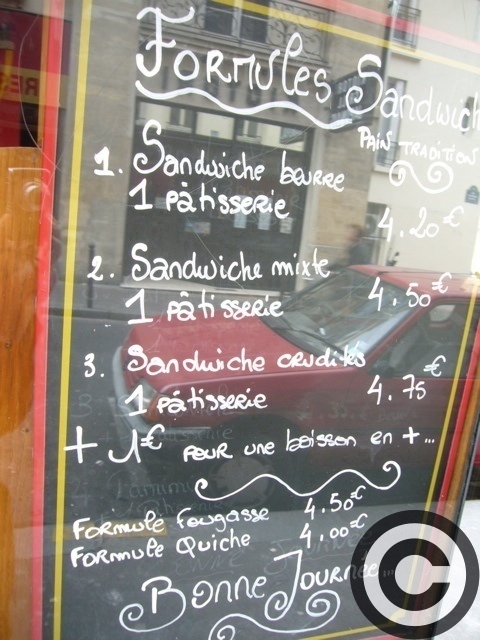 Formules Sandwich
PAIN TRADITION
1. Sandwiche beurre
1 pâtisserie
4.20€
2. Sandwiche mixte
1 pâtisserie 4.50€
3. Sandwiche crudités
1 pâtisserie 4.75€
+ 1€ pour une boisson en +...
Formule Fougasse 4.50€
Formule Quiche 4.00€
Bonne Journée...